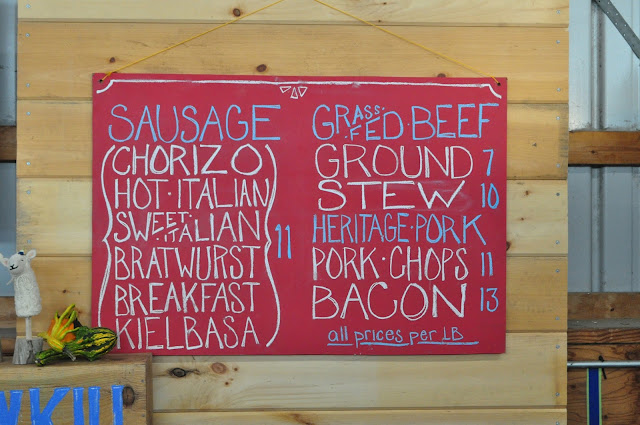 SAUSAGE
(CHORIZO)
HOT·ITALIAN
SWEET·ITALIAN
BRATWURST
BREAKFAST
KIELBASA
11
GRASS·FED·BEEF
GROUND 7
STEW 10
HERITAGE·PORK
PORK·CHOPS 11
BACON 13
all prices per LB